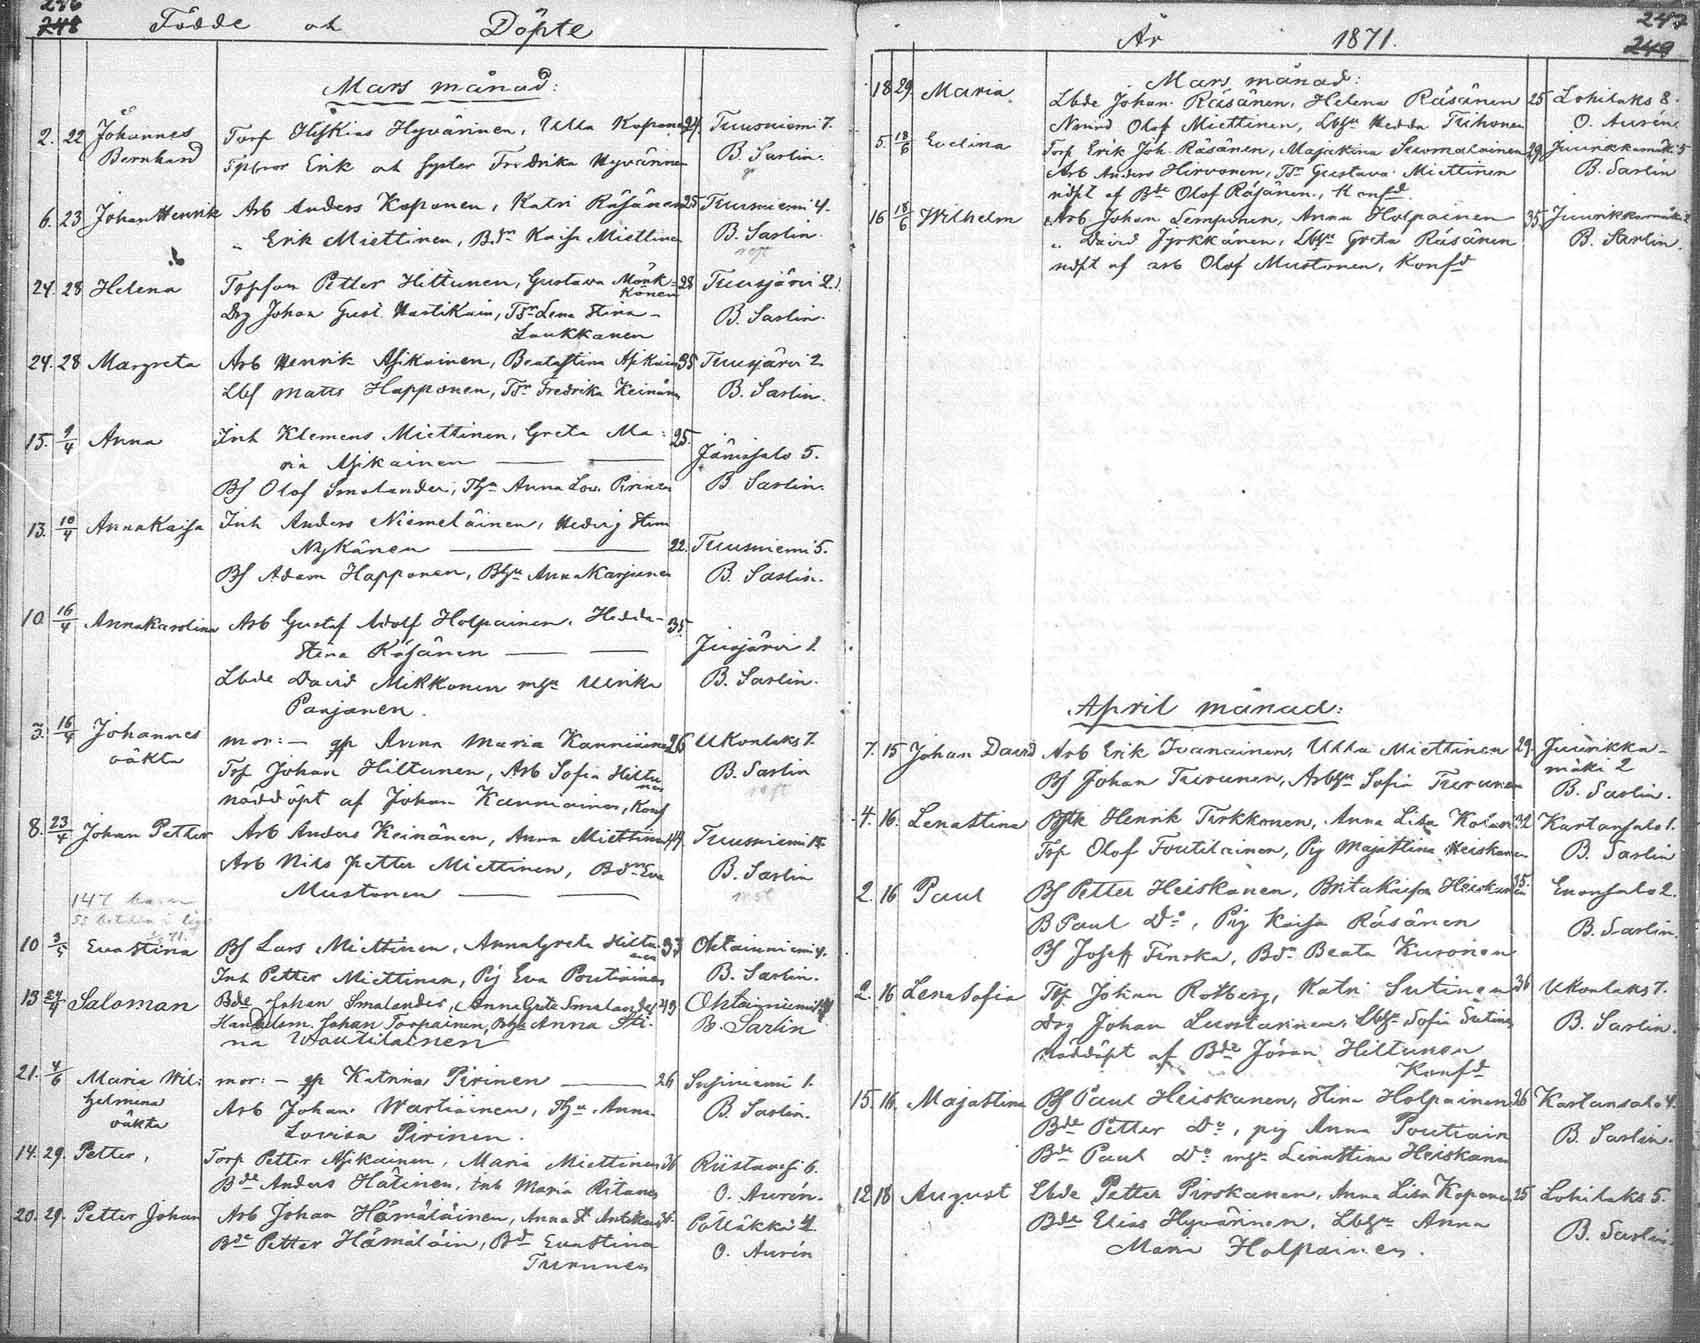 246
248 Födde och Döpte
Mars månad:
2. 22 Johannes Torp Heskias Hyvärinen, Ulla Koponen 24 Tuusniemi 7.
Bernhard Erik och syster Fredrika Hyvärinen B. Sarlin.
6. 23 Johan Henrik Arb Anders Koponen, Katri Räsänen 25 Tuusniemi 4.
" Erik Miettinen, Bdr Kaisa Miettinen B. Sarlin.
24. 28 Helena Torpson Petter Hiltunen, Gustava Mönk- 28 Tuusjärvi 21.
könen
Drg Johan Gust. Hartikain, Tr Lena Stina B. Sarlin.
Laukkanen
24. 28 Margreta Arb Henrik Asikainen, Beata Stina Asikain 35 Tuusjärvi 2
Lbs Matts Happonen, Tr Fredrika Keinän B. Sarlin.
15. 9/4 Anna Inh Klemens Miettinen, Greta Ma= 25.
ria Asikainen Jänissalo 5.
Bs Olof Smolander, Anna Lov. Pirinen B. Sarlin.
13. 10/4 Anna Kaisa Inh Anders Niemeläinen, Hedvig Stina
Nykänen 22. Tuusniemi 5.
Bs Adam Happonen, Anna Karjunen B. Sarlin.
10. 16/4 Anna Karolina Arb Gustaf Adolf Holpainen. Hedda- 35.
Stina Räsänen Juojärvi 1.
Lbde David Mikkonen Ulrika B. Sarlin.
Parjanen.
3. 16/4 Johannes mor:- Anna Maria Kanniainen 26 Ukonlaks 7.
oäkta Trp Johan Hiltunen, Arb Sofia Hiltu B. Sarlin
nen
nöddöpt af Johan Kanniainen, Konf
8. 23/4 Johan Petter Arb Anders Keinänen, Anna Miettinen 44. Tuusniemi 14.
Arb Nils Petter Miettinen, Bdr Eva B. Sarlin
Mustonen
147
10 3/5 Eva Stina Bs Lars Miettinen, Anna Greta Hiltu 33 Ohtainniemi 4.
nen
Inh Petter Miettinen, Pig Eva Poutiainen B. Sarlin.
13 24/4 Saloman Bde Johan Smalander, Anna Greta Smalander 43 Ohtainniemi
Johan Torpainen, Anna Sti- B. Sarlin
na Woutilainen
21. 4/6 Maria Wil: mor:- Katrina Pirinen 26 Susiniemi 1.
helmina Arb Johan Wartiainen, Anna B. Sarlin.
oäkta Lovisa Pirinen.
14. 29. Petter, Torp Petter Asikainen, Maria Miettinen 36 Riistavesi 6.
Bde Anders Hätinen, Inh Maria Ritanen O. Aurén.
20. 29. Petter Johan Arb Johan Hämäläinen, Anna St Antikain Pölläkkä 4
Bde Petter Hämäläin, Bd Eva Stina O. Aurén
Turunen
År 1871. 247
249
Mars månad:
18 29. Maria. Lbde Johan Räsänen, Helena Räsänen 25 Lohilaks 8.
Olof Miettinen, Hedda Tiihonen O. Aurén
5. 18/6 Evelina Torp Erik Joh. Räsänen, Majakina Suomalainen 29 Juurikkamäki 5
Arb Anders Hirvonen, Tr Gustava Miettinen B. Sarlin
ndpt af Bde Olof Räsänen, Konfd
16 18/6 Wilhelm Arb Johan Lemponen, Anna Holpainen 35. Juurikkamäki 2
" David Jyrkkänen, Greta Räsänen B. Sarlin.
ndpt af arb Olof Mustonen, Konfd
April månad:
7. 15 Johan David Arb Erik Ivanainen, Ulla Miettinen 29. Juurikka-
mäki 2
Bs Johan Turunen, Sofia Turunen B. Sarlin.
4. 16. Lena Stina Henrik Tirkkonen, Anna Lisa 32 Kartansalo 1.
Trp Olof Toutilainen, Pig Maja Stina Heiskanen B. Sarlin
2. 16 Paul Bs Petter Heiskanen, Brita Kaisa Heiskanen 35. Enonsalo 2.
B Paul Do, Pig Kaisa Räsänen B. Sarlin.
Bs Josef Finska, Bdr Beata Kuronen
2. 16 Lena Sofia Trp Johan Rotberg, Katri Sutinen 36 Ukonlaks 7.
Drg Johan Luostarinen, Sofia Sutinen B. Sarlin.
nöddöpt af Bde Jöran Hiltunen
Konfd
15. 16. Maja Stina Bs Paul Heiskanen, Stina Holpainen 26 Kartansalo 4.
Bde Petter Do, pig Anna Poutiain B. Sarlin.
Bde Paul Do Lena Stina Heiskanen
12. 18 August Lbde Petter Pirskanen, Anna Lisa Koponen 25 Lohilaks 5.
Bde Elias Hyvärinen, Anna B. Sarlin.
Maria Holpainen.